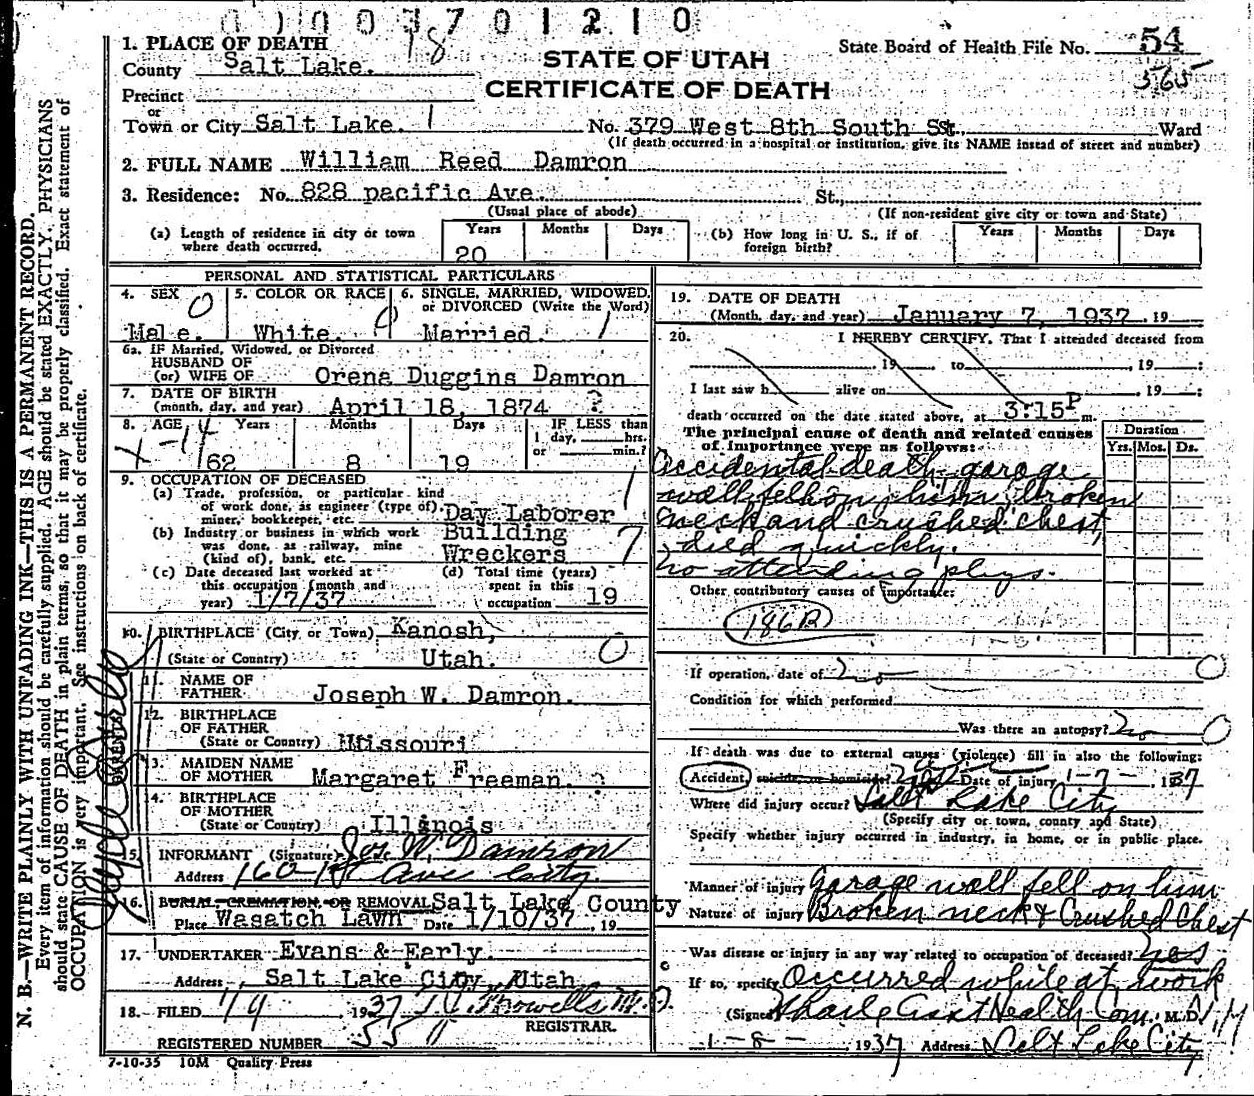 0 0 0 3 7 0 1 2 1 0
1. PLACE OF DEATH 18
County Salt Lake.
STATE OF UTAH
CERTIFICATE OF DEATH
State Board of Health File No. 54
565
Precinct
or
Town or City Salt Lake. 1 No. 379 West 8th South St. Ward
(If death occurred in a hospital or institution, give its NAME instead of street and number)
2. FULL NAME William Reed Damron
3. Residence: No. 828 pacific Ave. St.,
(Usual place of abode) (If non-resident give city or town and State)
(a) Length of residence in city or town where death occurred. Years 20 Months Days
(b) How long in U. S., if of foreign birth? Years Months Days
PERSONAL AND STATISTICAL PARTICULARS
4. SEX 0 Male.
5. COLOR OR RACE White.
6. SINGLE, MARRIED, WIDOWED, or DIVORCED (Write the Word) Married. 1
6a. IF Married, Widowed, or Divorced
HUSBAND OF
(or) WIFE OF Orena Duggins Damron
7. DATE OF BIRTH
(month, day, and year) April 18, 1874 ?
8. AGE Years 62 Months 8 Days 19 IF LESS than 1 day, hrs. or min.?
9. OCCUPATION OF DECEASED 1
(a) Trade, profession, or particular kind
of work done, as engineer (type of),
miner, bookkeeper, etc. Day Laborer
(b) Industry or business in which work
was done, as railway, mine
(kind of), bank, etc. Building Wreckers 7
(c) Date deceased last worked at
this occupation (month and
year) 1/7/37
(d) Total time (years)
spent in this
occupation 19
10. BIRTHPLACE (City or Town) Kanosh,
(State or Country) Utah. 0
11. NAME OF
FATHER Joseph W. Damron.
12. BIRTHPLACE
OF FATHER
(State or Country) Missouri
13. MAIDEN NAME
OF MOTHER Margaret Freeman. ?
14. BIRTHPLACE
OF MOTHER
(State or Country) Illinois
PARENTS
15. INFORMANT (Signature) Jos. W. Damron
Address 160 1st Ave City.
16. BURIAL, CREMATION OR REMOVAL Salt Lake County
Place Wasatch Lawn Date 1/10/37, 19
17. UNDERTAKER Evans & Early.
Address Salt Lake City, Utah
18. FILED 1937 M.D.
REGISTRAR.
REGISTERED NUMBER 55
7-10-35 10M Quality Press
19. DATE OF DEATH
(Month, day, and year) January 7, 1937, 19
20. I HEREBY CERTIFY, That I attended deceased from
, 19 to , 19 :
I last saw h alive on , 19 :
death occurred on the date stated above, at 3:15 P m.
The principal cause of death and related causes
of importance were as follows:
Duration
Yrs. Mos. Ds.
Accidental death garage
wall fell on him, broken
neck and crushed chest,
died quickly.
no attending phys.
Other contributory causes of importance:
186B
If operation, date of no 0
Condition for which performed
Was there an autopsy? no 0
If death was due to external causes (violence) fill in also the following:
Accident, suicide, or homicide? Date of injury 1-7-1937
Where did injury occur? Salt Lake City
(Specify city or town, county and State)
Specify whether injury occurred in industry, in home, or in public place.
Manner of injury Garage wall fell on him
Nature of injury Broken neck & Crushed Chest
Was disease or injury in any way related to occupation of deceased? Yes
If so, specify Occurred while at work
(Signed) Health Com. M.D.
1-8-, 1937 Address Salt Lake City
N. B.—WRITE PLAINLY WITH UNFADING INK—THIS IS A PERMANENT RECORD.
Every item of information should be carefully supplied. AGE should be stated EXACTLY. PHYSICIANS
should state CAUSE OF DEATH in plain terms, so that it may be properly classified. Exact statement of
OCCUPATION is very important. See instructions on back of certificate.